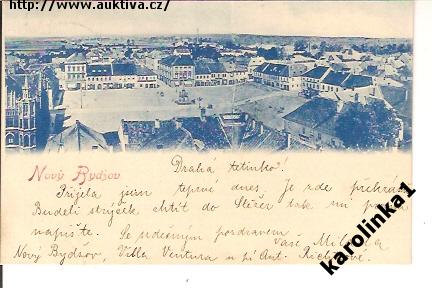 http://www.auktiva.cz/
Nový Bydžov
Drahá tetinko!
Přijela jsem teprve dnes, je zde překrásně
Budeli strýček chtít do Stěžer tak mi
napište. Se srdečným pozdravem
Vaše
Nový Bydžov, Villa Ventura u pí Ant.
karolinka1